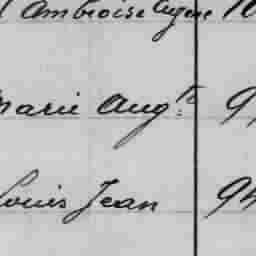 Ambroise Eugene
Marie Augte 9
Louis Jean 94